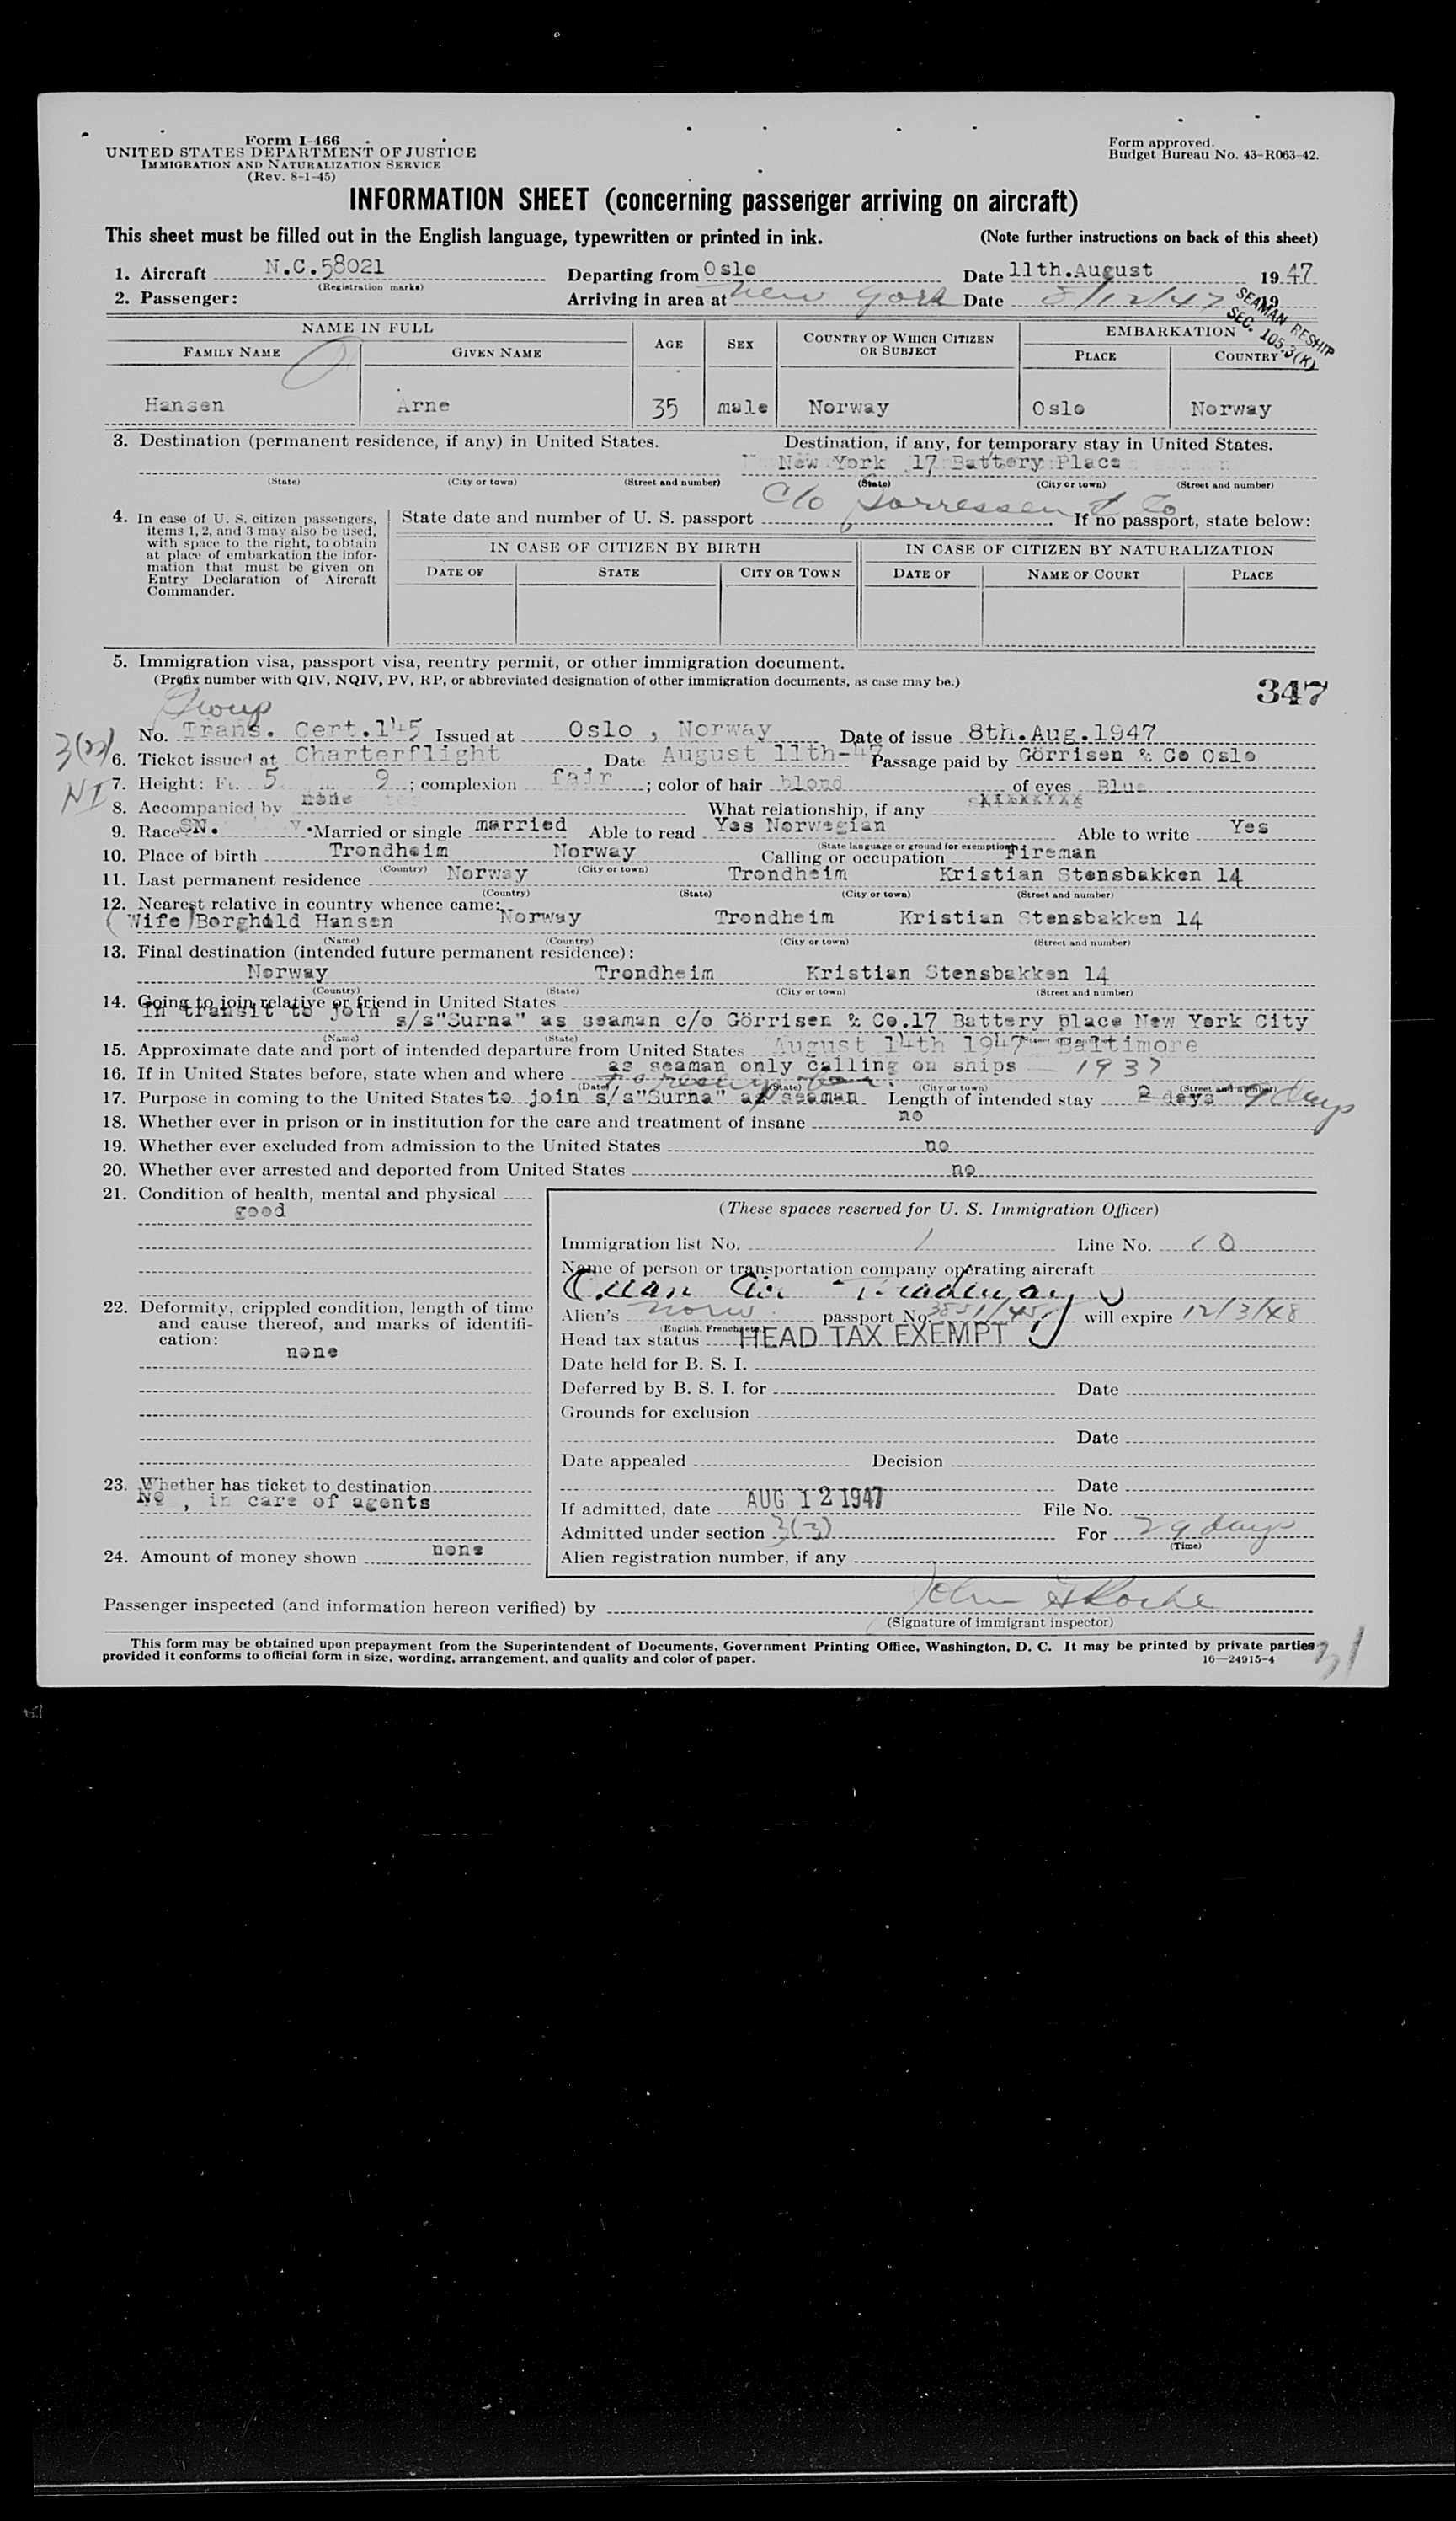 Form I-466
UNITED STATES DEPARTMENT OF JUSTICE
IMMIGRATION AND NATURALIZATION SERVICE
(Rev. 8-1-45)
Form approved.
Budget Bureau No. 43-R063-42.
INFORMATION SHEET (concerning passenger arriving on aircraft)
This sheet must be filled out in the English language, typewritten or printed in ink. (Note further instructions on back of this sheet)
1. Aircraft N.C.58021 Departing from Oslo Date 11th.August 1947
(Registration marks)
2. Passenger: Arriving in area at New York Date 8/12/47 19
SEAMAN RESHIP
SEC. 105.3(K)
NAME IN FULL AGE SEX COUNTRY OF WHICH CITIZEN OR SUBJECT EMBARKATION
FAMILY NAME GIVEN NAME PLACE COUNTRY
Hansen Arne 35 male Norway Oslo Norway
3. Destination (permanent residence, if any) in United States. Destination, if any, for temporary stay in United States.
New York 17 Battery Place
(State) (City or town) (Street and number) (State) (City or town) (Street and number)
C/o Gorressen & Co
4. In case of U. S. citizen passengers, items 1, 2, and 3 may also be used, with space to the right, to obtain at place of embarkation the information that must be given on Entry Declaration of Aircraft Commander.
State date and number of U. S. passport If no passport, state below:
IN CASE OF CITIZEN BY BIRTH IN CASE OF CITIZEN BY NATURALIZATION
DATE OF STATE CITY OR TOWN DATE OF NAME OF COURT PLACE
5. Immigration visa, passport visa, reentry permit, or other immigration document.
(Prefix number with QIV, NQIV, PV, RP, or abbreviated designation of other immigration documents, as case may be.)
347
Group
No. Trans. Cert.145 Issued at Oslo, Norway Date of issue 8th.Aug.1947
6. Ticket issued at Charterflight Date August 11th-47 Passage paid by Görrisen & Co Oslo
7. Height: Ft. 5 9 ; complexion fair ; color of hair blond of eyes Blue
NI
8. Accompanied by none What relationship, if any
9. Race SN. Married or single married Able to read Yes Norwegian Able to write Yes
(State language or ground for exemption)
10. Place of birth Trondheim Norway Calling or occupation Fireman
(Country) (City or town)
11. Last permanent residence Norway Trondheim Kristian Stensbakken 14
(Country) (State) (City or town) (Street and number)
12. Nearest relative in country whence came:
(Wife)Borghild Hansen Norway Trondheim Kristian Stensbakken 14
(Name) (Country) (City or town) (Street and number)
13. Final destination (intended future permanent residence):
Norway Trondheim Kristian Stensbakken 14
(Country) (State) (City or town) (Street and number)
14. Going to join relative or friend in United States
In transit to join s/s"Surna" as seaman c/o Görrisen & Co.17 Battery place New York City
(Name) (State)
15. Approximate date and port of intended departure from United States August 14th 1947 Baltimore
16. If in United States before, state when and where as seaman only calling on ships 1937
(Date) (State) (City or town) (Street and number)
17. Purpose in coming to the United States to join s/s"Surna" as seaman Length of intended stay 2 days 9 days
18. Whether ever in prison or in institution for the care and treatment of insane no
19. Whether ever excluded from admission to the United States no
20. Whether ever arrested and deported from United States no
21. Condition of health, mental and physical
good
22. Deformity, crippled condition, length of time and cause thereof, and marks of identification:
none
23. Whether has ticket to destination
No, in care of agents
24. Amount of money shown none
(These spaces reserved for U. S. Immigration Officer)
Immigration list No. 1 Line No. 10
Name of person or transportation company operating aircraft
Ocean Air Tradeways
Alien's Norw passport No. will expire 12/3/48
(English, French, etc.)
Head tax status HEAD TAX EXEMPT
Date held for B. S. I.
Deferred by B. S. I. for Date
Grounds for exclusion
Date
Date appealed Decision
Date
If admitted, date AUG 12 1947 File No.
Admitted under section 3(3) For 29 days
(Time)
Alien registration number, if any
Passenger inspected (and information hereon verified) by John Roche
(Signature of immigrant inspector)
This form may be obtained upon prepayment from the Superintendent of Documents, Government Printing Office, Washington, D. C. It may be printed by private parties
provided it conforms to official form in size, wording, arrangement, and quality and color of paper.
16—24915-4
31